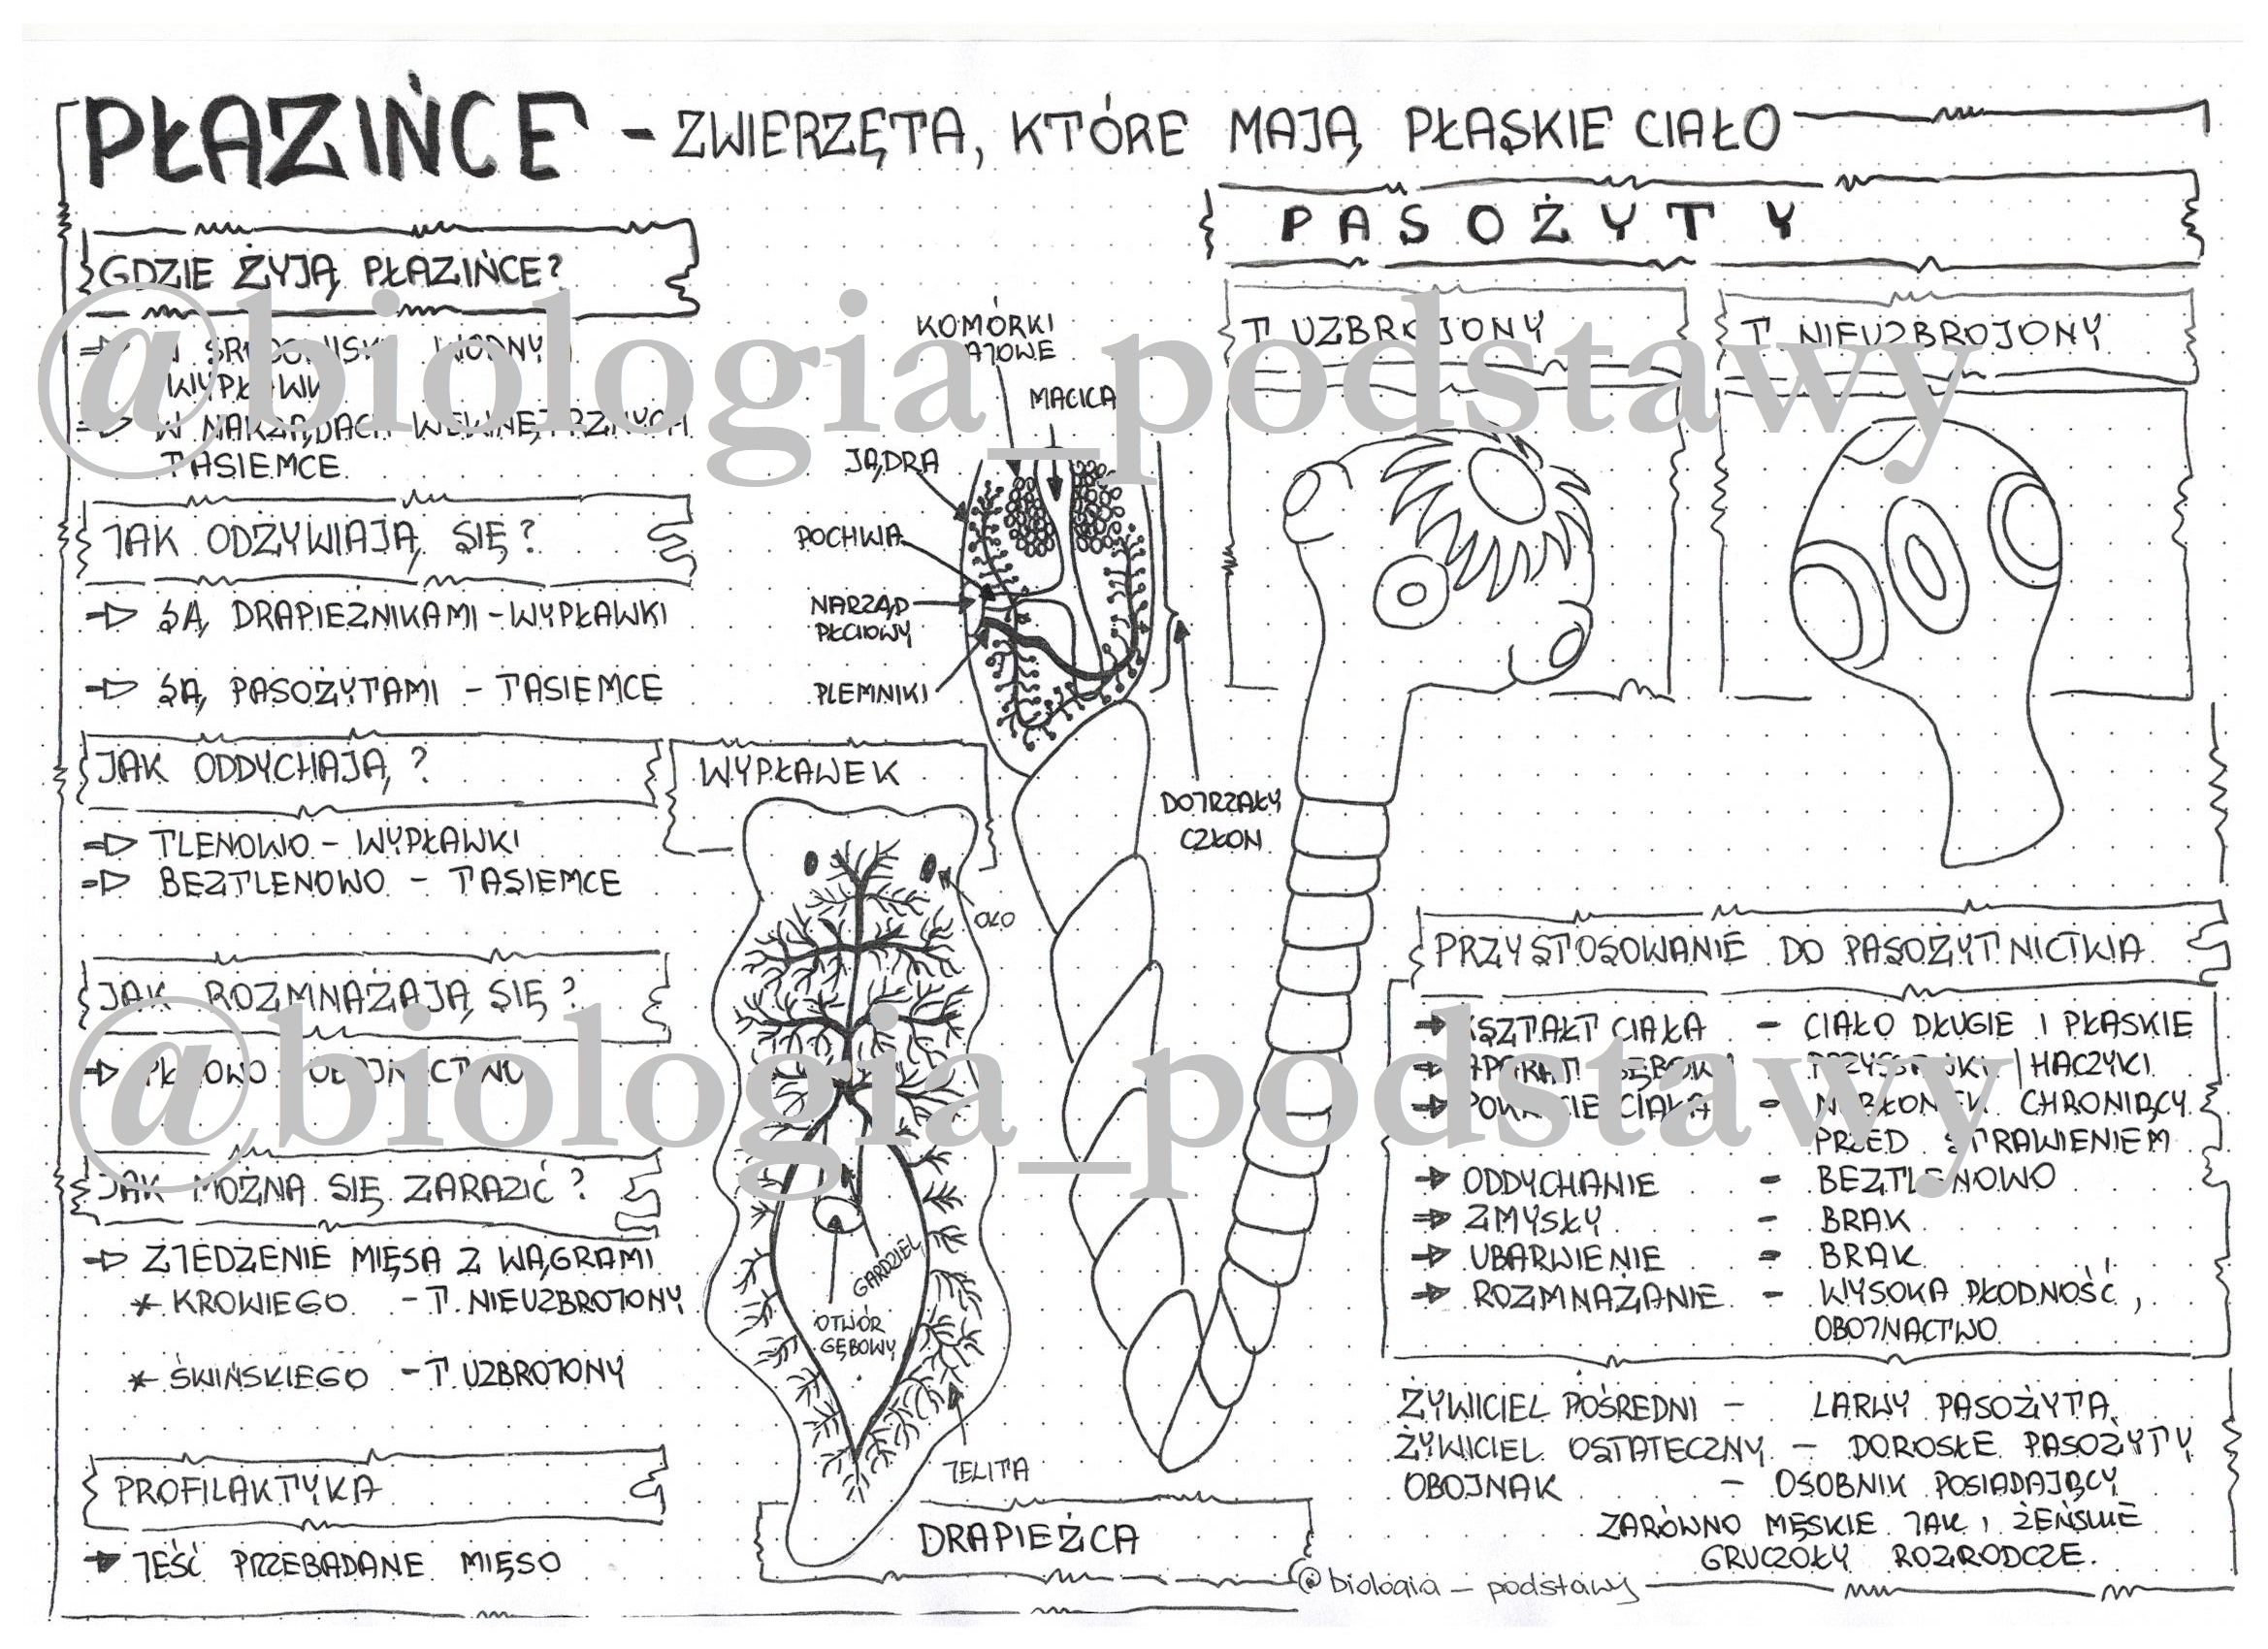 PŁAZIŃCE - ZWIERZĘTA, KTÓRE MAJĄ PŁASKIE CIAŁO
GDZIE ŻYJĄ PŁAZIŃCE?
W WODNYM
WYPŁAWKI
W NARZĄDACH WEWNĘTRZNYCH
TASIEMCE
JAK ODŻYWIAJĄ SIĘ?
SĄ DRAPIEŻNIKAMI - WYPŁAWKI
SĄ PASOŻYTAMI - TASIEMCE
JAK ODDYCHAJĄ?
TLENOWO - WYPŁAWKI
BEZTLENOWO - TASIEMCE
JAK ROZMNAŻAJĄ SIĘ?
PŁCIOWO OBOJNACTWO
JAK MOŻNA SIĘ ZARAZIĆ?
ZJEDZENIE MIĘSA Z WĄGRAMI
* KROWIEGO - T. NIEUZBROJONY
* ŚWIŃSKIEGO - T. UZBROJONY
PROFILAKTYKA
JEŚĆ PRZEBADANE MIĘSO
KOMÓRKI
JAJOWE
MACICA
JĄDRA
POCHWA
NARZĄD
PŁCIOWY
PLEMNIKI
DOJRZAŁY
CZŁON
WYPŁAWEK
OKO
GARDZIEL
OTWÓR
GĘBOWY
JELITA
DRAPIEŻCA
PASOŻYTY
T. UZBROJONY
T. NIEUZBROJONY
PRZYSTOSOWANIE DO PASOŻYTNICTWA
KSZTAŁT CIAŁA - CIAŁO DŁUGIE I PŁASKIE
APARAT GĘBOWY - PRZYSSAWKI / HACZYKI
POKRYCIE CIAŁA - NABŁONEK CHRONIĄCY
PRZED STRAWIENIEM
ODDYCHANIE - BEZTLENOWO
ZMYSŁY - BRAK
UBARWIENIE - BRAK
ROZMNAŻANIE - WYSOKA PŁODNOŚĆ,
OBOJNACTWO
ŻYWICIEL POŚREDNI - LARWY PASOŻYTA
ŻYWICIEL OSTATECZNY - DOROSŁE PASOŻYTY
OBOJNAK - OSOBNIK POSIADAJĄCY
ZARÓWNO MĘSKIE JAK I ŻEŃSKIE
GRUCZOŁY ROZRODCZE.
@biologia_podstawy
@biologia_podstawy
@biologia_podstawy